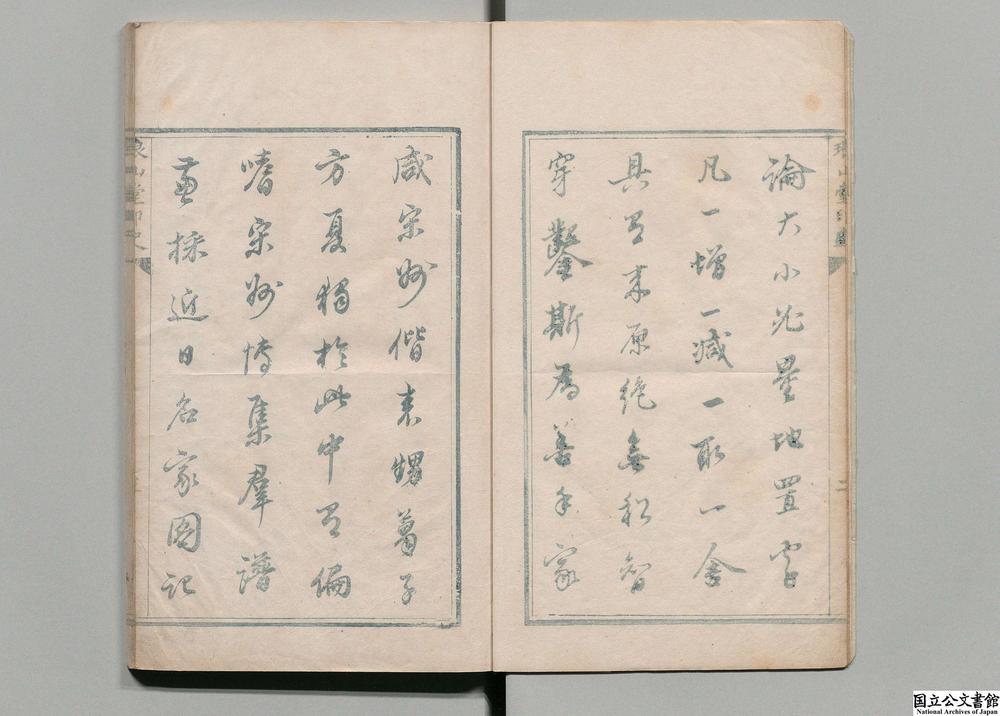 論大小冘星地置字
凡一增一減一取一舍
具有來原絶無私智
穿鑿斯為善手家
咸宋州偕表甥葛子
方夏獨於此中有偏
嗜宋州博集羣譜
兼採近日名家圖記
二
国立公文書館
National Archives of Japan